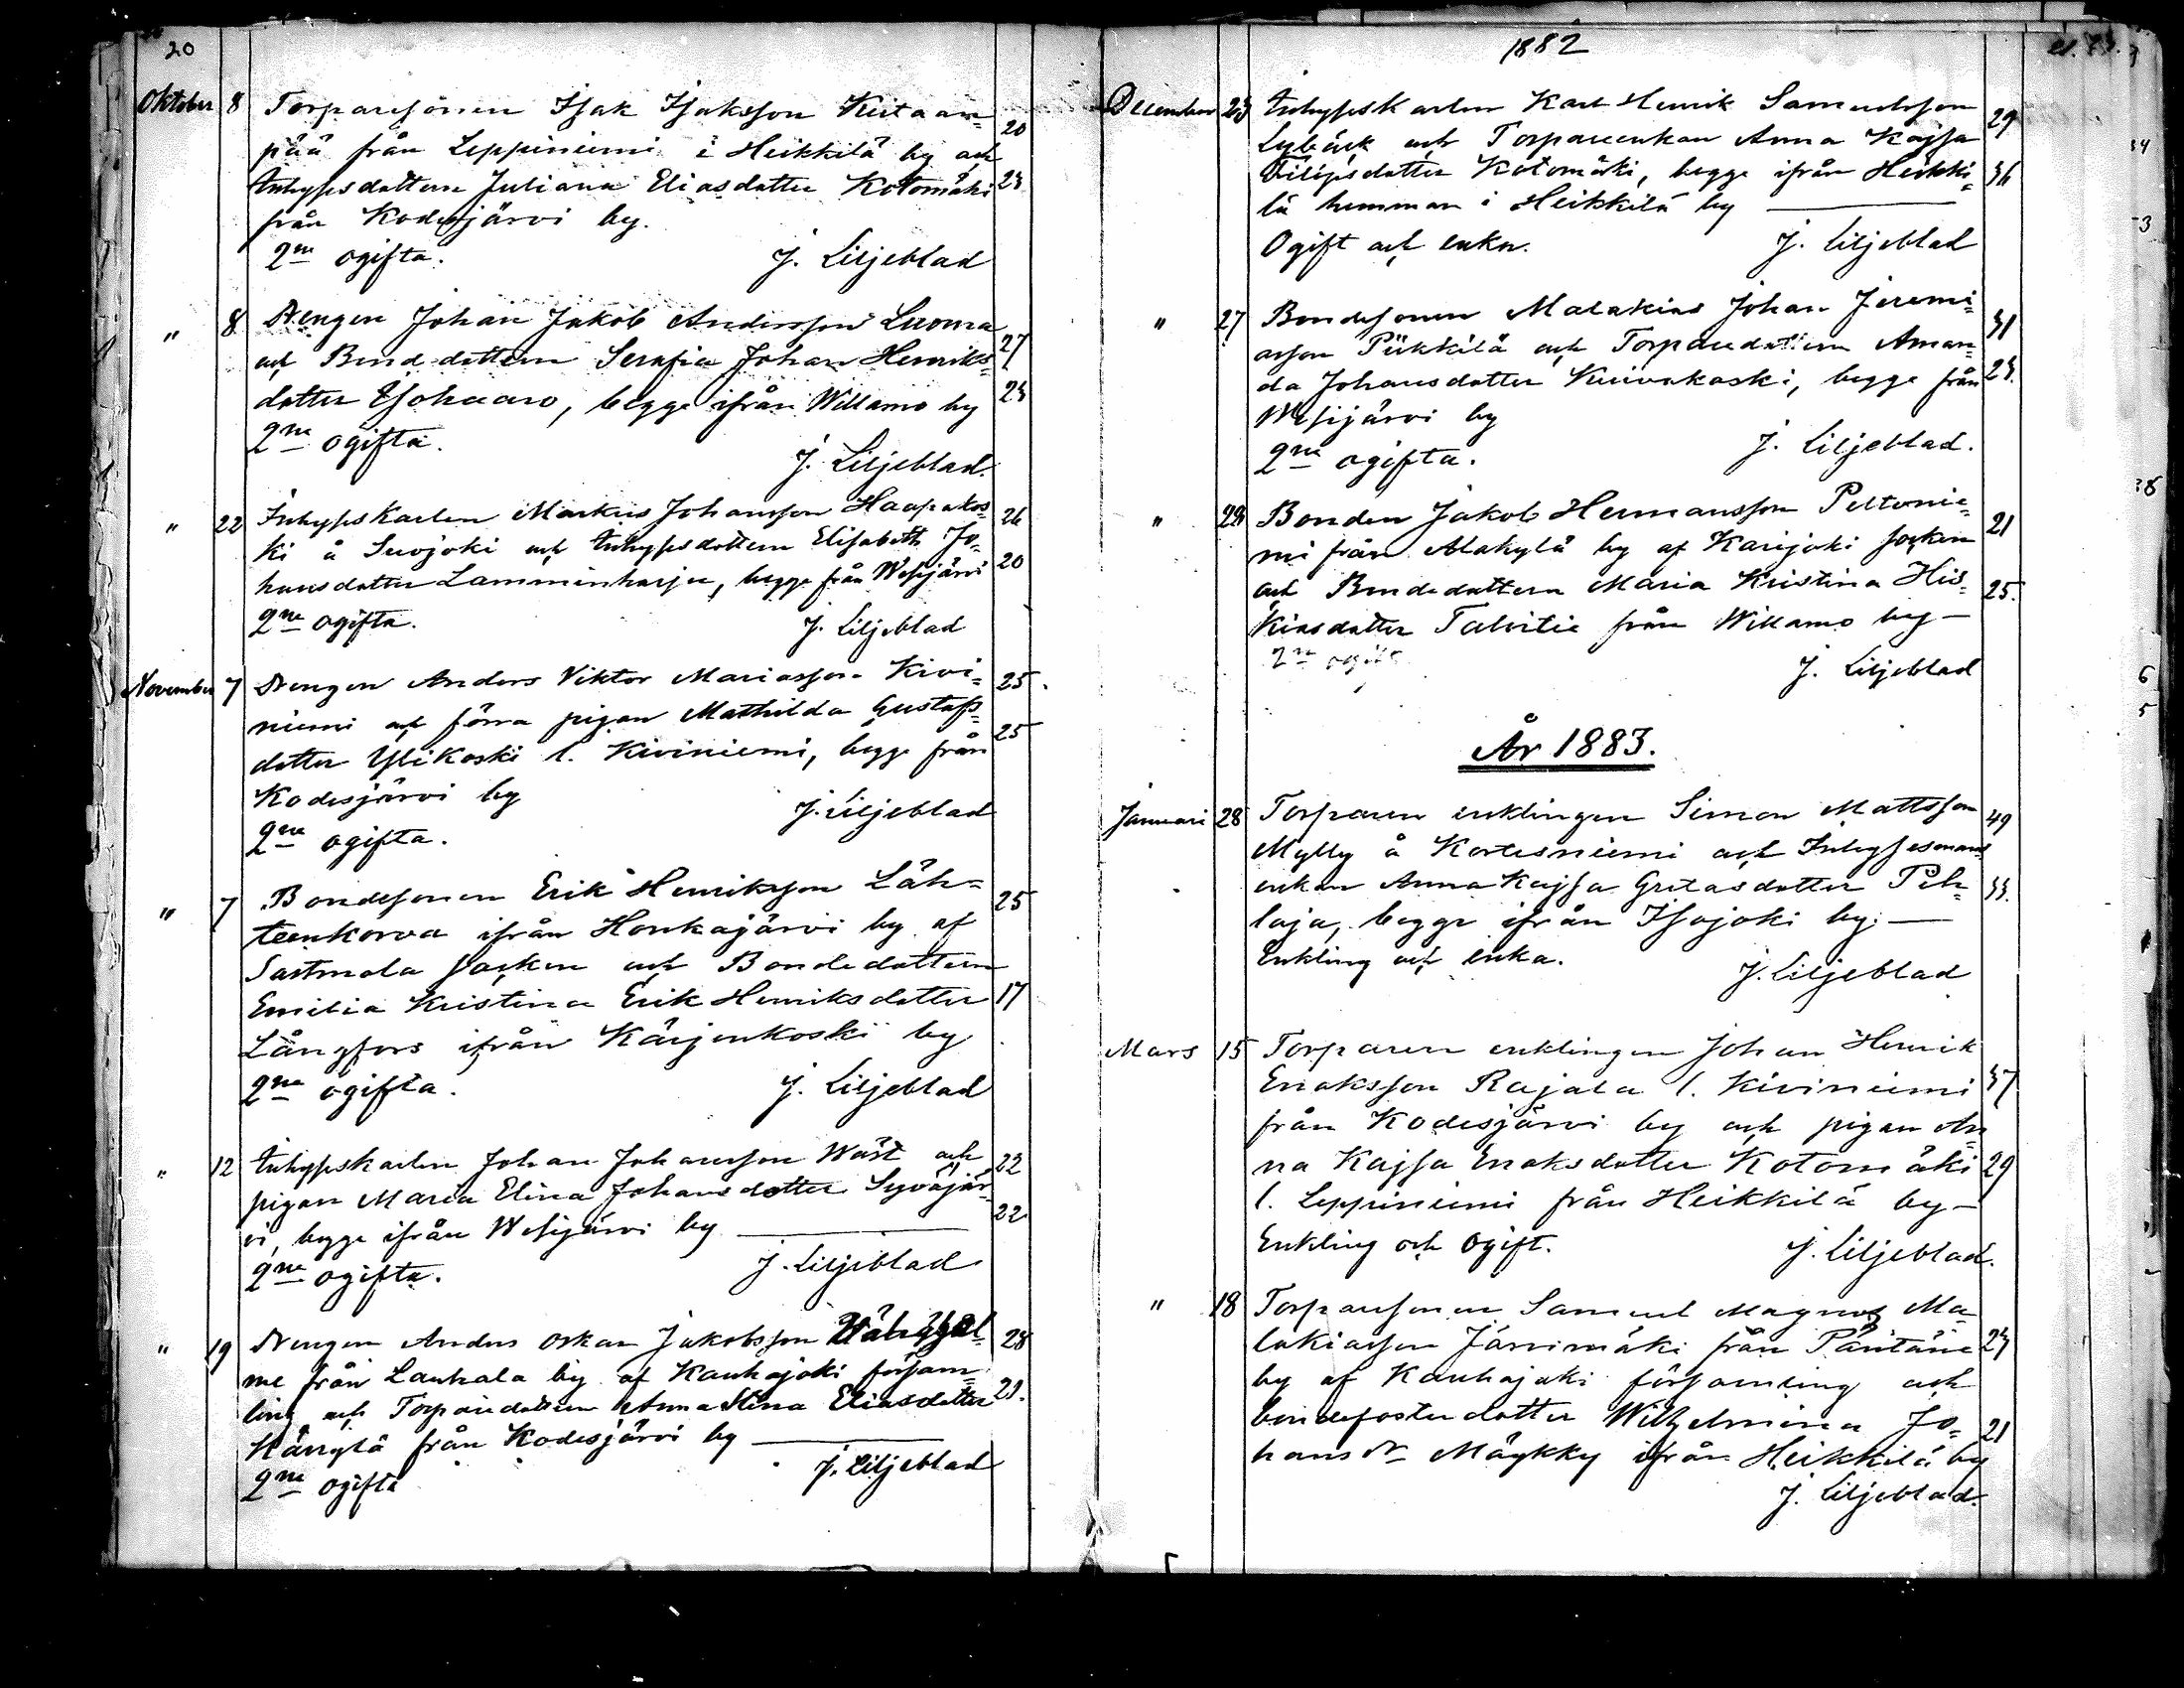 20
Oktober 8 Torparesonen Isak Isaksson Kiitaan= 20
pää från Leppiniemi i Heikkilä by och
Inhysesdottern Juliana Eliasdotter Kotomäki 23
från Kodesjärvi by.
2ne ogifta. J. Liljeblad
" 8 Drengen Johan Jakob Andersson Luoma 27
och Bondedottern Serafia Johan Henriks=
dotter Ysokaaro, begge ifrån Willamo by 23
2ne ogifta.
J. Liljeblad.
" 22 Inhyseskarlen Markus Johansson Haapakos= 26
ki å Suojoki och Inhysesdottern Elisabeth Jo=
hansdotter Lamminharju, begge från Wesijärvi 20
2ne ogifta. J. Liljeblad
November 7 Drengen Anders Viktor Mariasson Kivi= 25.
niemi och förra pigan Mathilda Gustafs=
dotter Ylikoski l. Kiviniemi, begge från 25
Kodesjärvi by J. Liljeblad
2ne ogifta.
" 7 Bondesonen Erik Henriksson Läh= 25
teenkorva ifrån Honkajärvi by af
Sastmola socken och Bondedottern
Emilia Kristina Erik Henriksdotter 17
Långfors ifrån Kärjenkoski by
2ne ogifta. J. Liljeblad
" 12 Inhyseskarlen Johan Johansson Wäst och 22
pigan Maria Elina Johansdotter Syväjär=
vi, begge ifrån Wesijärvi by 22
2ne ogifta. J. Liljeblad
" 19 Drengen Anders Oskar Jakobsson 28
me från Lauhala by af Kauhajoki församl=
ling och Torparedottern Anna Stina Eliasdotter 23.
Hängylä från Kodesjärvi by
2ne ogifta J. Liljeblad
1882
December 23 Inhyseskarlen Karl Henrik Samuelsson 29
Lybäck och Torpareenkan Anna Kajsa
Filipsdotter Kotomäki, begge ifrån Heikki= 36
lä hemman i Heikkilä by
Ogift och enka. J. Liljeblad
" 27 Bondesonen Malakias Johan Jeremi= 31
asson Piikkilä och Torparedottern Aman=
da Johansdotter Kuivakoski, begge från 23.
Wesijärvi by
2ne ogifta. J. Liljeblad.
" 28 Bonden Jakob Hermansson Peltonie= 21
mi från Alakylä by af Karijoki socken
och Bondedottern Maria Kristina His= 25.
kiasdotter Talvitie från Willamo by
2ne ogift J. Liljeblad
År 1883.
Januari 28 Torparen enklingen Simon Mattsson 49
Mylly å Kortesniemi och Inhysesmans
enkan Anna Kajsa Gretasdotter Peh= 33.
laja, begge ifrån Isojoki by.
Enkling och enka. J. Liljeblad
Mars 15 Torparen enklingen Johan Henrik
Enoksson Rajala l. Kiviniemi 37
från Kodesjärvi by och pigan An
na Kajsa Enoksdotter Kotomäki 29
l. Leppiniemi från Heikkilä by
Enkling och Ogift. J. Liljeblad.
" 18 Torparesonen Samuel Magnus Ma=
lakiasson Järvimäki från Päntäne 23
by af Kauhajoki församling och
bondefosterdotter Wilhelmina Jo= 21
hans dr Mäykky ifrån Heikkilä by
J. Liljeblad.